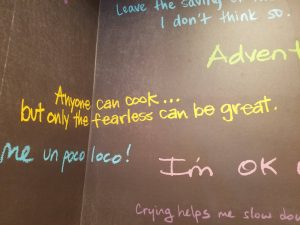 Leave the saving of
I don't think so.
Advent
Anyone can cook...
but only the fearless can be great.
me un poco loco!
I'm OK
Crying helps me slow dow